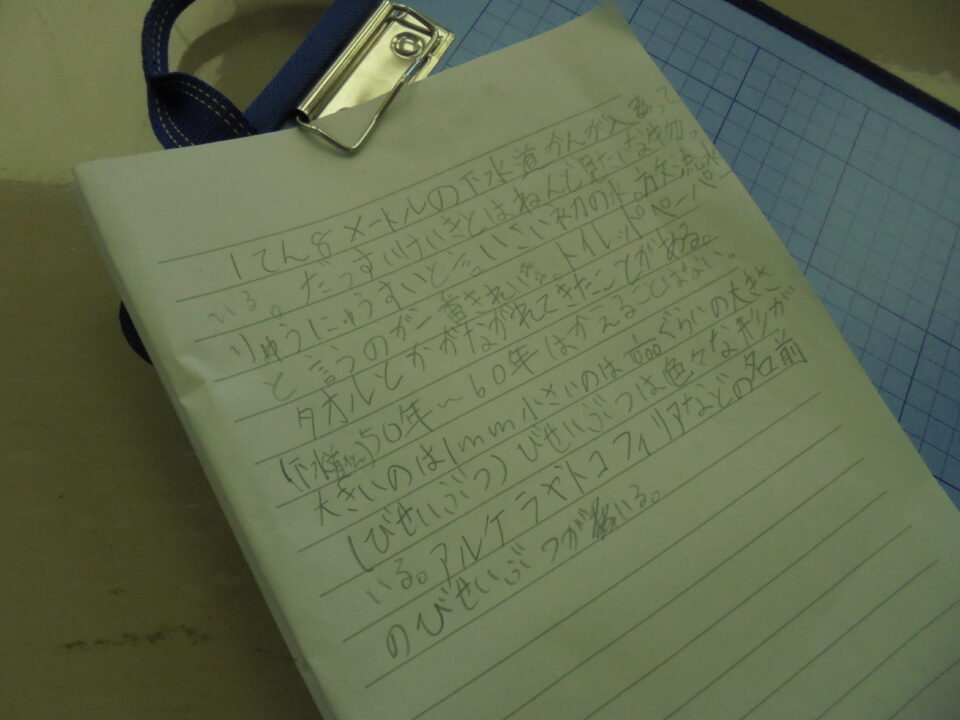 1てん8メートルの下水道かんが入って
いる。だっすいけいきとはねんど見たいな物。
りゅうにゅうすいと言いさい初の水。方流水
と言うのが一番きれい。トイレットペーパー
タオルとかがながれてきたことがある。
(下水道かん)50年〜60年はかえることはない。
大きいのは1mm小さいのは ぐらいの大きさ
(びせいぶつ)びせいぶつは色々な形が
いる。アルケラやトコフィリアなどの名前
のびせいぶつがいる。